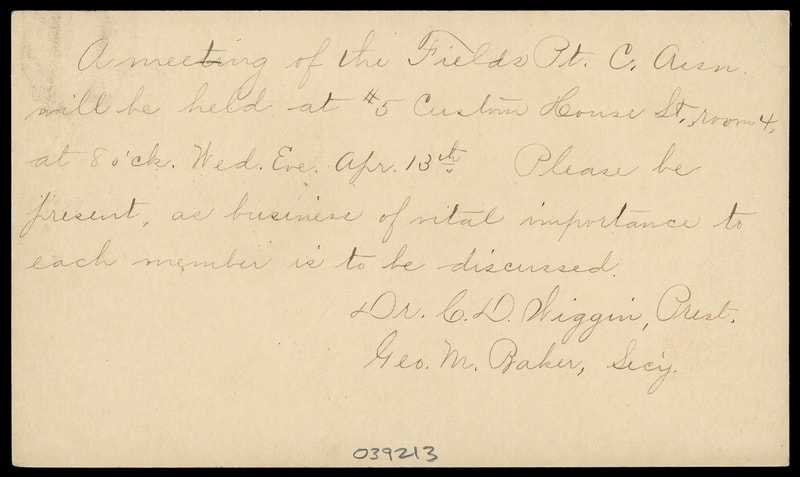 A meeting of the Fields Pt. C. Assn.
will be held at #5 Custom House St, room 4,
at 8 o'ck. Wed. Eve. Apr. 13th Please be
present, as business of vital importance to
each member is to be discussed.
Dr. C. D. Wiggin, Prest.
Geo. M. Baker, Sec'y.
039213